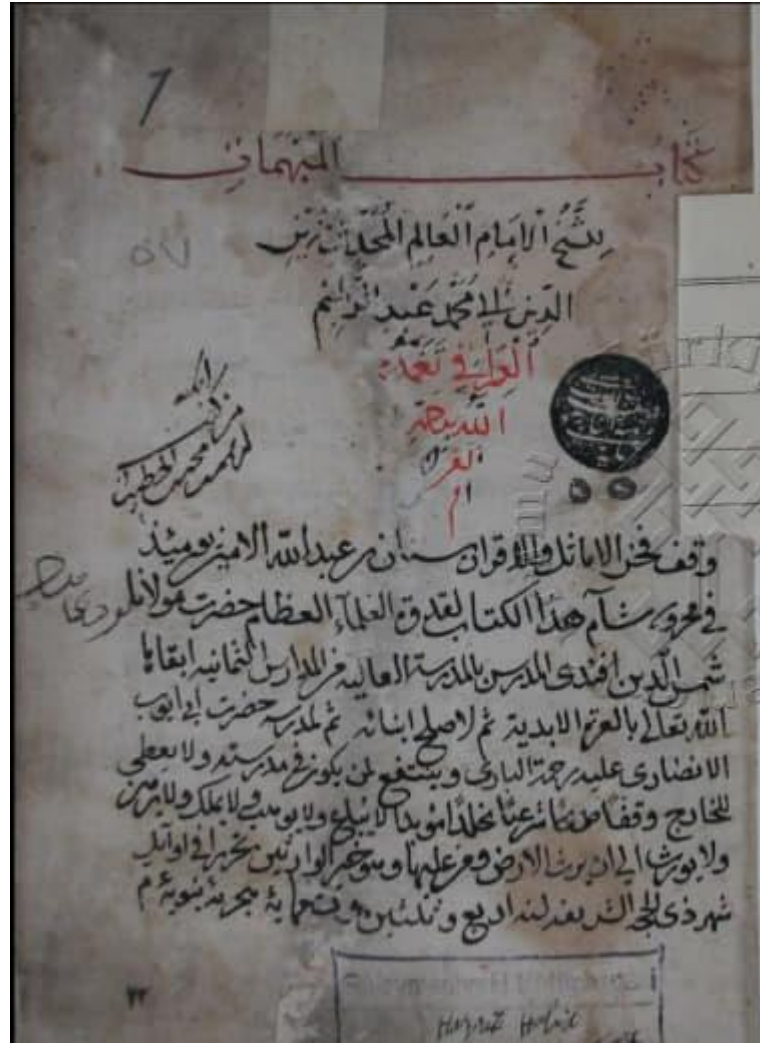 1
كتاب المبهمات
للشيخ الإمام العالم المحدث زين
الدين أبي محمد عبد الرحيم
العراقي تغمده
الله برحمته
وقف فخر الاماثل والاقران سنان بن عبد الله الامين يومئذ
في محروسة شام هذا الكتاب لقدوة العلماء العظام حضرت مولانا
شمس الدين افندى المدرس بالمدرسة العالية من المدارس الثمانيه ابقاها
الله تعالى بالعزة الابدية ثم لاصلح ابنائه ثم لمدرسه حضرت ابي ايوب
الانصارى عليه رحمة البارى وينتفع لمن يكون في مدرسته ولا يعطى
للخارج وقفا شرعيا مخلدا مؤبدا لا يباع ولا يوهب ولا يملك ولا يرهن
ولا يورث الى ان يرث الله الارض ومن عليها وهو خير الوارثين تحريرا في اوائل
شهر ذى الحجه الشريفه لسنة اربع وثلثين وتسعماية هجرية نبوية م
٢٢